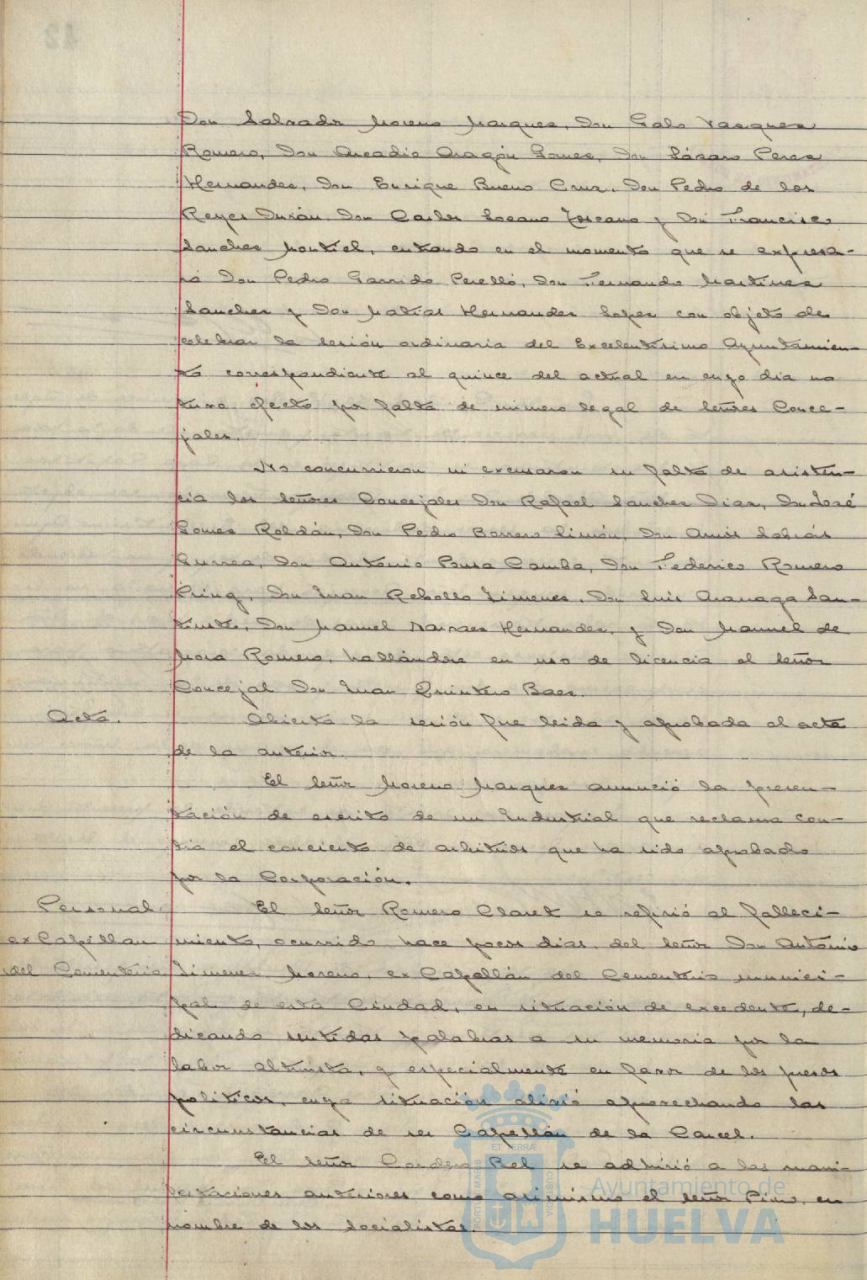 Don Salvador Moreno Marquez, Don Galo Vazquez
Romero, Don Arcadio Aragón Gomez, Don Lázaro Perez
Hernandez, Don Enrique Bueno Cruz, Don Pedro de los
Reyes Durán, Don Carlos Lozano Toscano y Don Francisco
Sanchez Montiel, entrando en el momento que se expresa-
rá Don Pedro Garrido Perelló, Don Fernando Martinez
Sanchez y Don Matias Hernandez Lopez con objeto de
celebrar la sesión ordinaria del Excelentisimo Ayuntamien-
to correspondiente al quince del actual en cuyo dia no
tuvo efecto por falta de número legal de señores Conce-
jales.
No concurrieron ni excusaron su falta de asisten-
cia los señores Concejales Don Rafael Sanchez Diaz, Don José
Gomez Roldán, Don Pedro Borrero Limón, Don Amós Sabrás
Gurrea, Don Antonio Pousa Camba, Don Federico Romero
Don Juan Rebollo Jimenez, Don Luis
Don Manuel Narvaez Hernandez, y Don Manuel de
Mora Romero, hallándose en uso de licencia el señor
Concejal Don Juan Quintero Baez.
Acta.
Abierta la sesión fue leida y aprobada el acta
de la anterior.
El señor Moreno Marquez anunció la presen-
tación de escrito de un Industrial que reclama con-
tra el concierto de arbitrios que ha sido aprobado
por la Corporación.
Personal
ex Capellan
del Cementerio
El señor Romero Claret se refirió al falleci-
miento, ocurrido hace pocos dias, del señor Don Antonio
Jimenez Moreno, ex Capellán del Cementerio munici-
pal de esta Ciudad, en situación de excedente, de-
dicando sentidas palabras a su memoria por la
labor altruista, y especialmente en favor de los presos
politicos, cuya situación alivió aprovechando las
circunstancias de ser Capellán de la Carcel.
El señor Cordero Bel se adhirió a las mani-
festaciones anteriores como asimismo el señor Pino, en
nombre de los socialistas.
Ayuntamiento de
HUELVA